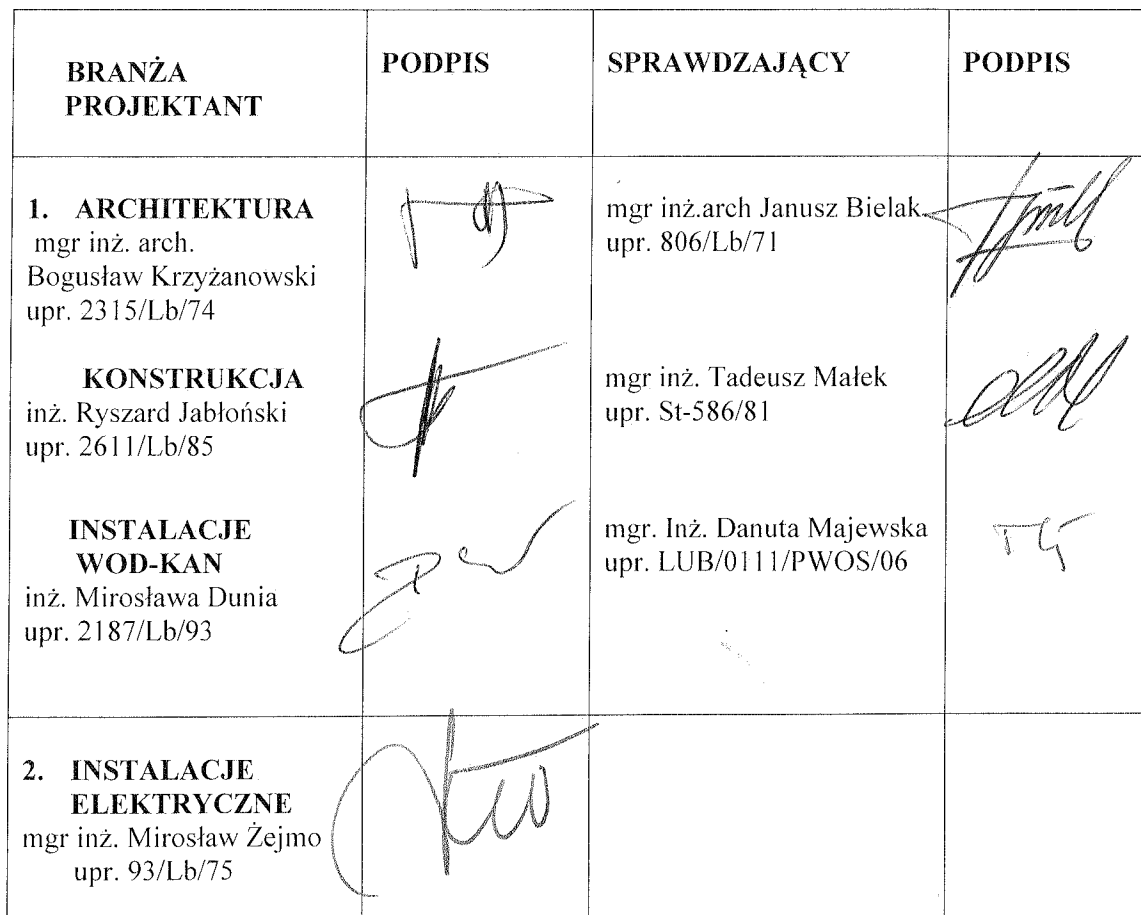 BRANŻA
PROJEKTANT
PODPIS
SPRAWDZAJĄCY
PODPIS
1. ARCHITEKTURA
mgr inż. arch.
Bogusław Krzyżanowski
upr. 2315/Lb/74
mgr inż.arch Janusz Bielak
upr. 806/Lb/71
KONSTRUKCJA
inż. Ryszard Jabłoński
upr. 2611/Lb/85
mgr inż. Tadeusz Małek
upr. St-586/81
INSTALACJE
WOD-KAN
inż. Mirosława Dunia
upr. 2187/Lb/93
mgr. Inż. Danuta Majewska
upr. LUB/0111/PWOS/06
2. INSTALACJE
ELEKTRYCZNE
mgr inż. Mirosław Żejmo
upr. 93/Lb/75